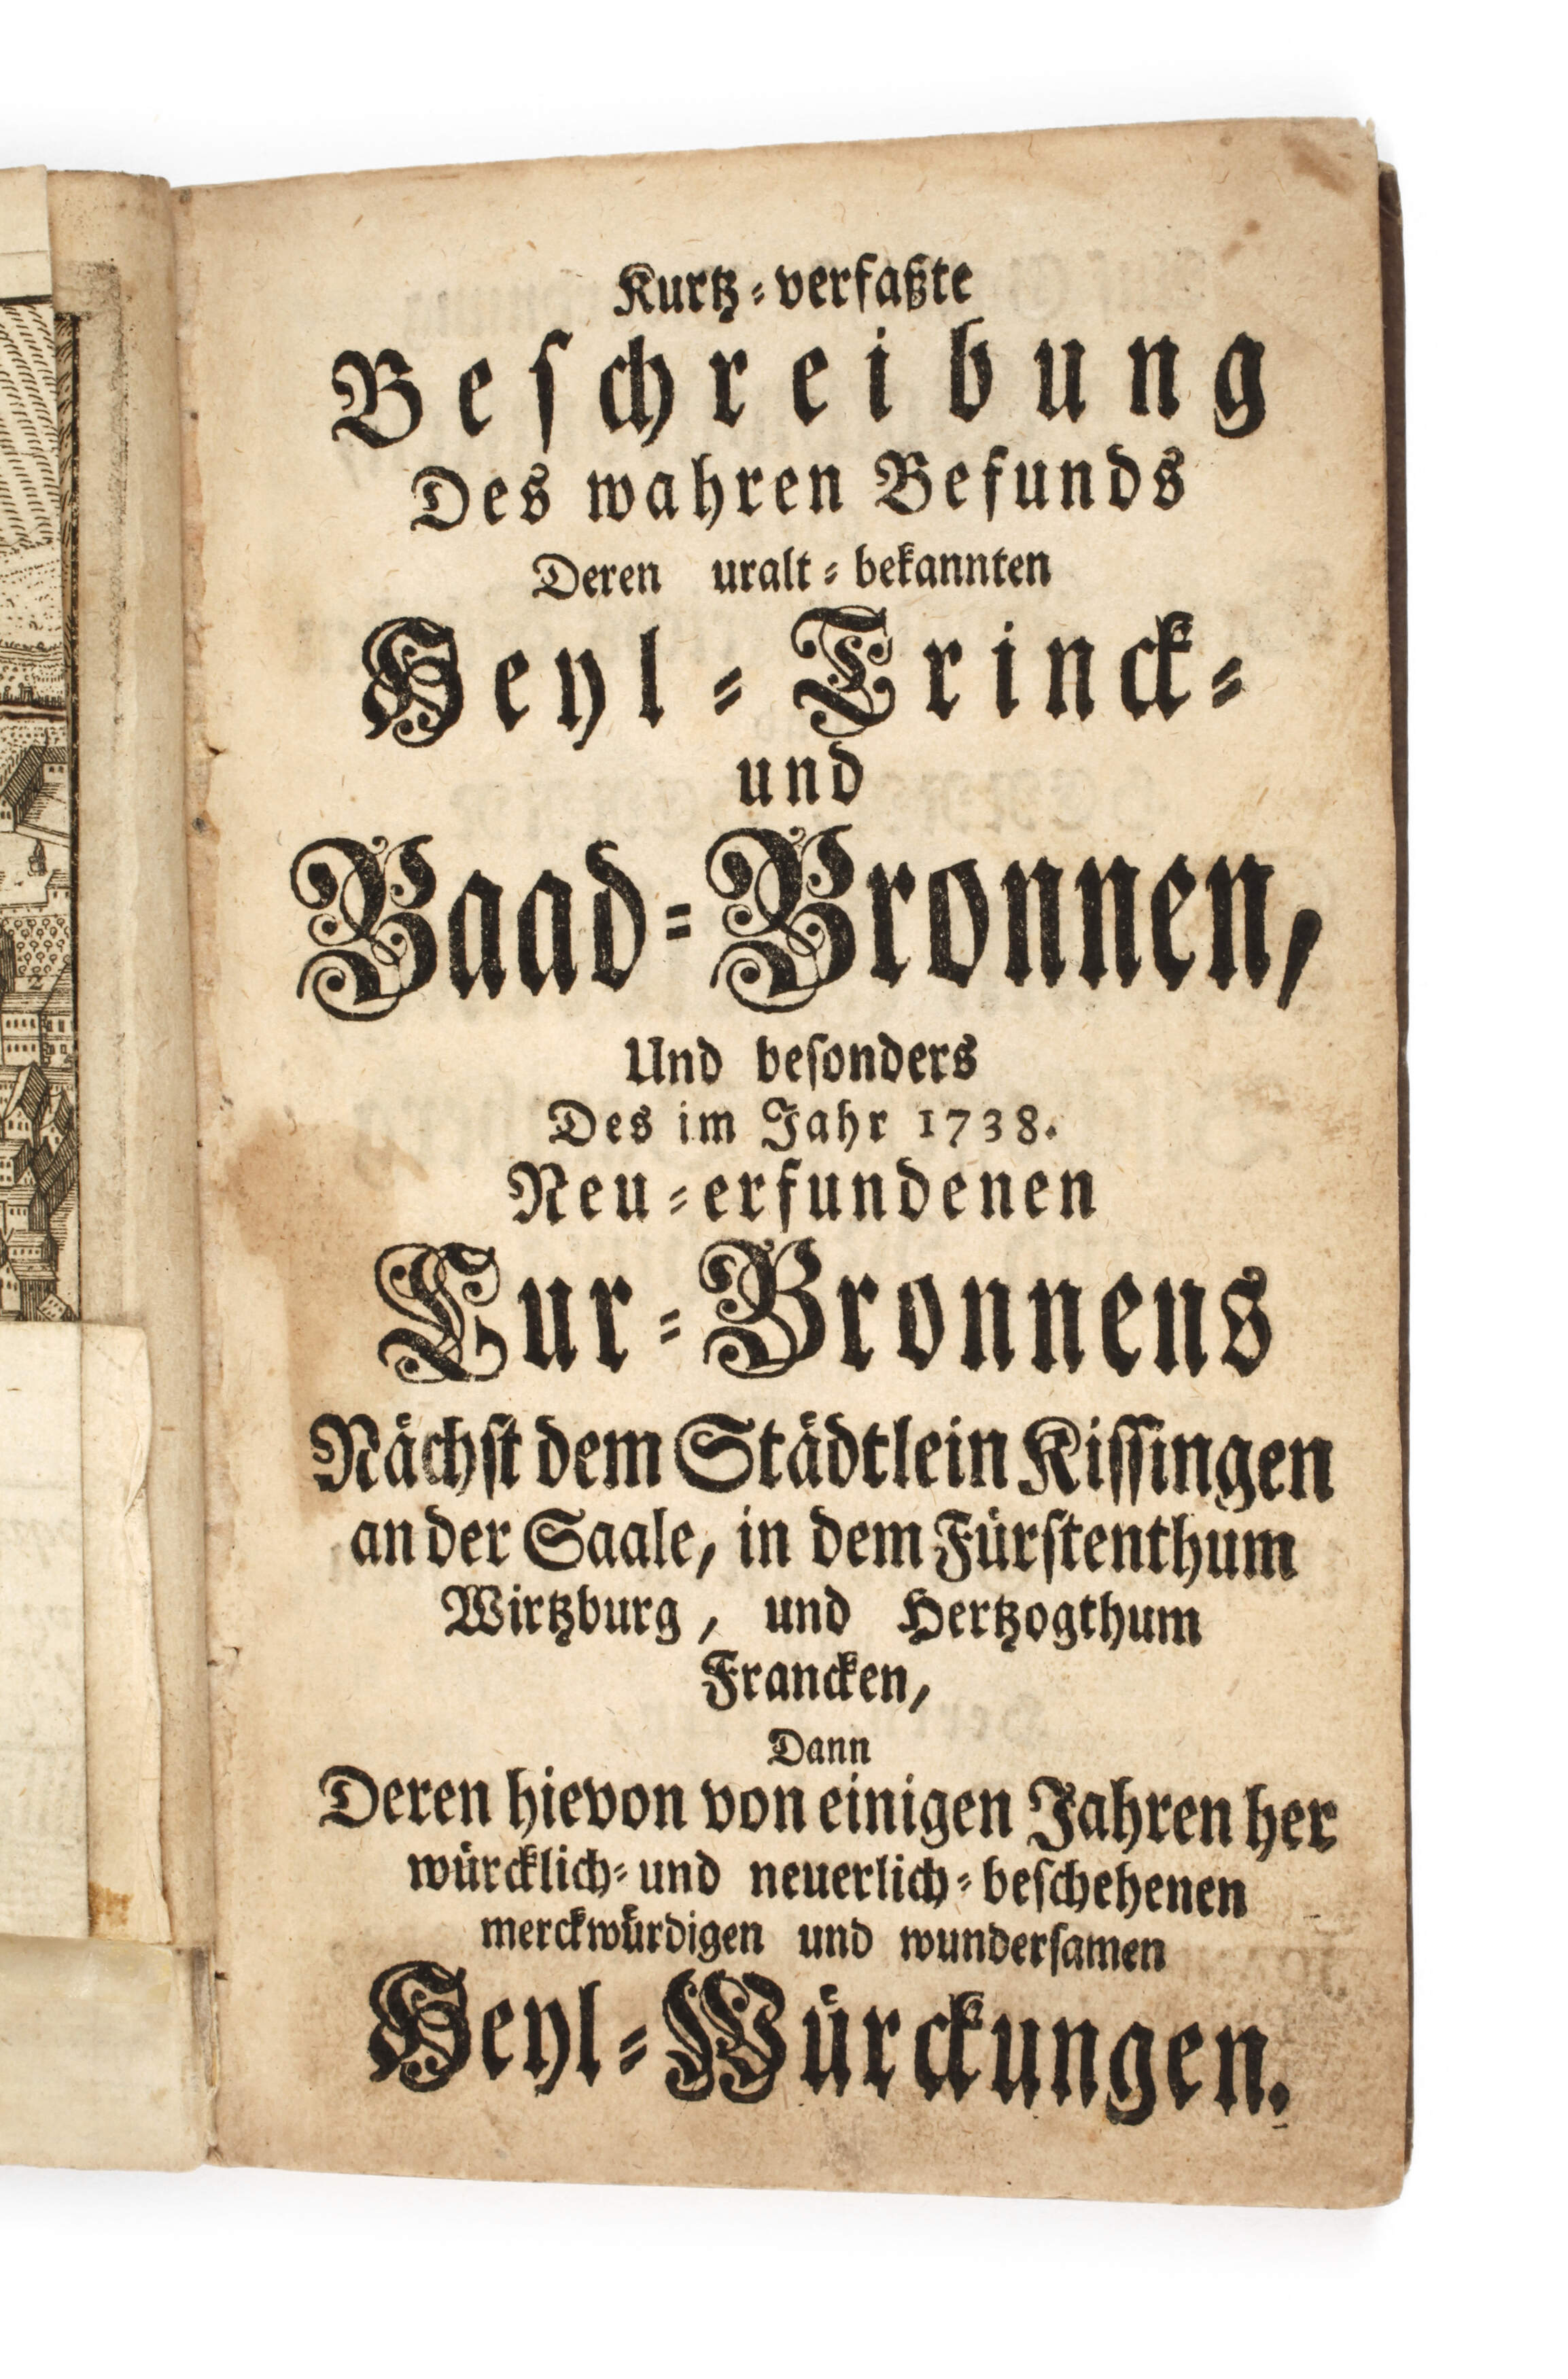 Kurtz-verfaßte
Beſchreibung
Des wahren Befunds
Deren uralt-bekannten
Heyl-Trinck-
und
Baad-Bronnen,
Und beſonders
Des im Jahr 1738.
Neu-erfundenen
Cur-Bronnens
Nächſt dem Städtlein Kiſſingen
an der Saale, in dem Fürſtenthum
Wirtzburg, und Hertzogthum
Francken,
Dann
Deren hievon von einigen Jahren her
würcklich- und neuerlich-beſchehenen
merckwürdigen und wunderſamen
Heyl-Würckungen.
2